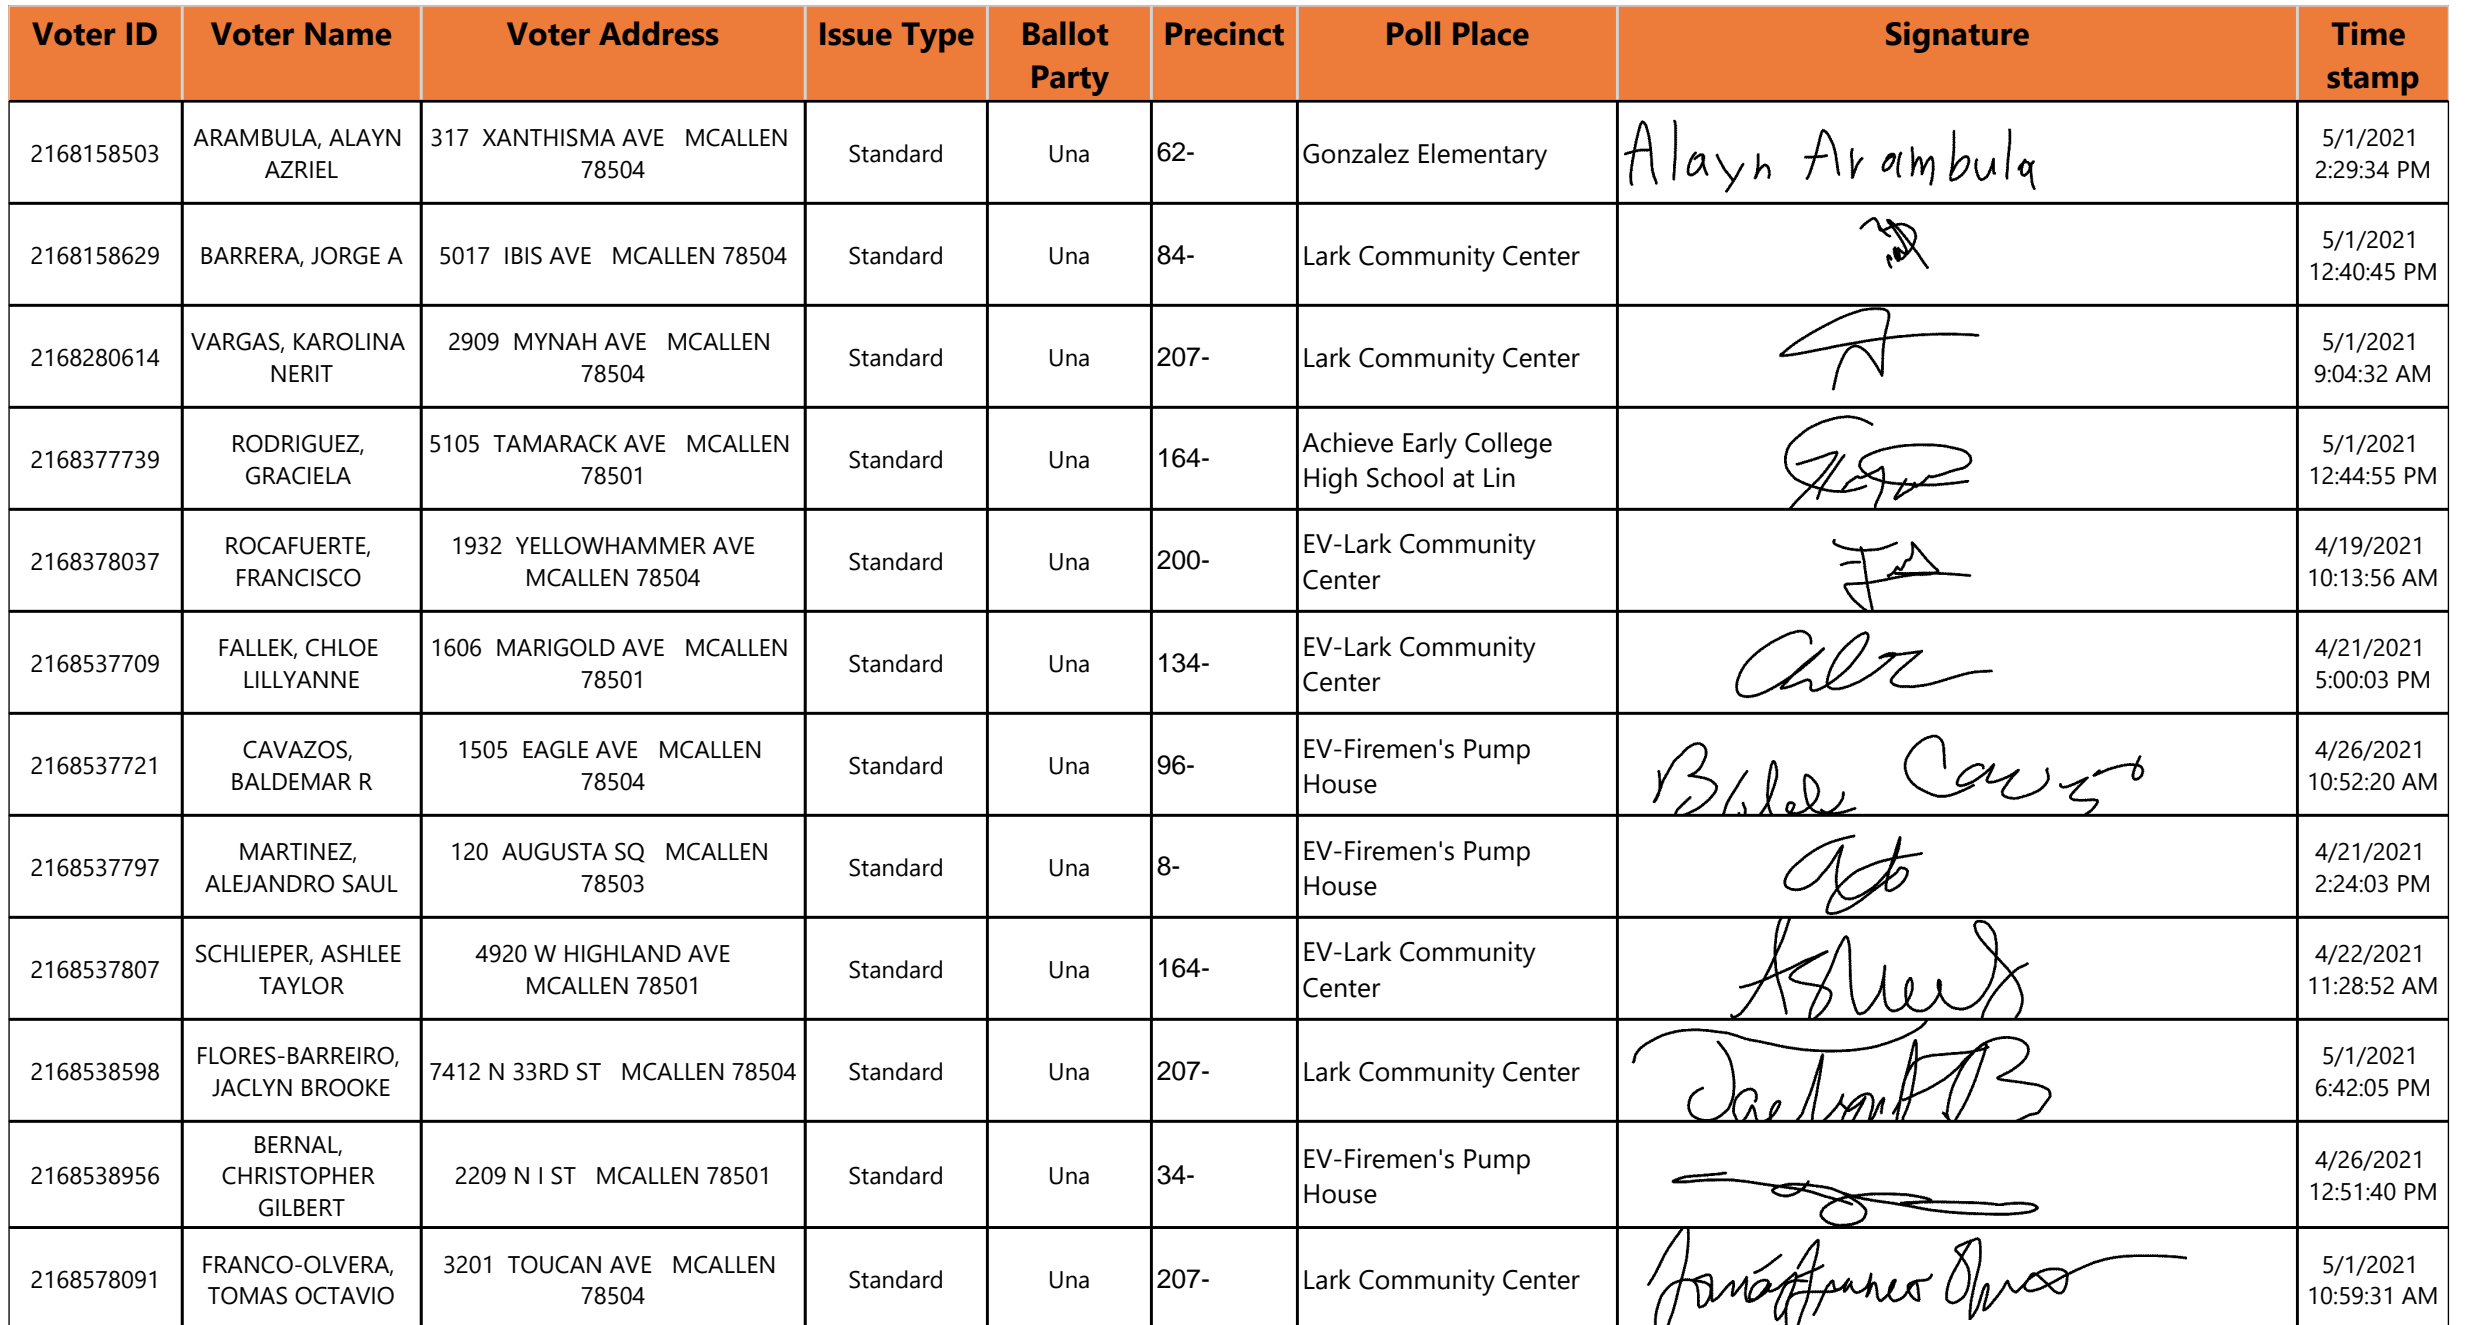 Voter ID Voter Name Voter Address Issue Type Ballot Party Precinct Poll Place Signature Time stamp
2168158503 ARAMBULA, ALAYN AZRIEL 317 XANTHISMA AVE MCALLEN 78504 Standard Una 62- Gonzalez Elementary Alayn Arambula 5/1/2021 2:29:34 PM
2168158629 BARRERA, JORGE A 5017 IBIS AVE MCALLEN 78504 Standard Una 84- Lark Community Center 5/1/2021 12:40:45 PM
2168280614 VARGAS, KAROLINA NERIT 2909 MYNAH AVE MCALLEN 78504 Standard Una 207- Lark Community Center 5/1/2021 9:04:32 AM
2168377739 RODRIGUEZ, GRACIELA 5105 TAMARACK AVE MCALLEN 78501 Standard Una 164- Achieve Early College High School at Lin 5/1/2021 12:44:55 PM
2168378037 ROCAFUERTE, FRANCISCO 1932 YELLOWHAMMER AVE MCALLEN 78504 Standard Una 200- EV-Lark Community Center 4/19/2021 10:13:56 AM
2168537709 FALLEK, CHLOE LILLYANNE 1606 MARIGOLD AVE MCALLEN 78501 Standard Una 134- EV-Lark Community Center 4/21/2021 5:00:03 PM
2168537721 CAVAZOS, BALDEMAR R 1505 EAGLE AVE MCALLEN 78504 Standard Una 96- EV-Firemen's Pump House 4/26/2021 10:52:20 AM
2168537797 MARTINEZ, ALEJANDRO SAUL 120 AUGUSTA SQ MCALLEN 78503 Standard Una 8- EV-Firemen's Pump House 4/21/2021 2:24:03 PM
2168537807 SCHLIEPER, ASHLEE TAYLOR 4920 W HIGHLAND AVE MCALLEN 78501 Standard Una 164- EV-Lark Community Center 4/22/2021 11:28:52 AM
2168538598 FLORES-BARREIRO, JACLYN BROOKE 7412 N 33RD ST MCALLEN 78504 Standard Una 207- Lark Community Center 5/1/2021 6:42:05 PM
2168538956 BERNAL, CHRISTOPHER GILBERT 2209 N I ST MCALLEN 78501 Standard Una 34- EV-Firemen's Pump House 4/26/2021 12:51:40 PM
2168578091 FRANCO-OLVERA, TOMAS OCTAVIO 3201 TOUCAN AVE MCALLEN 78504 Standard Una 207- Lark Community Center 5/1/2021 10:59:31 AM